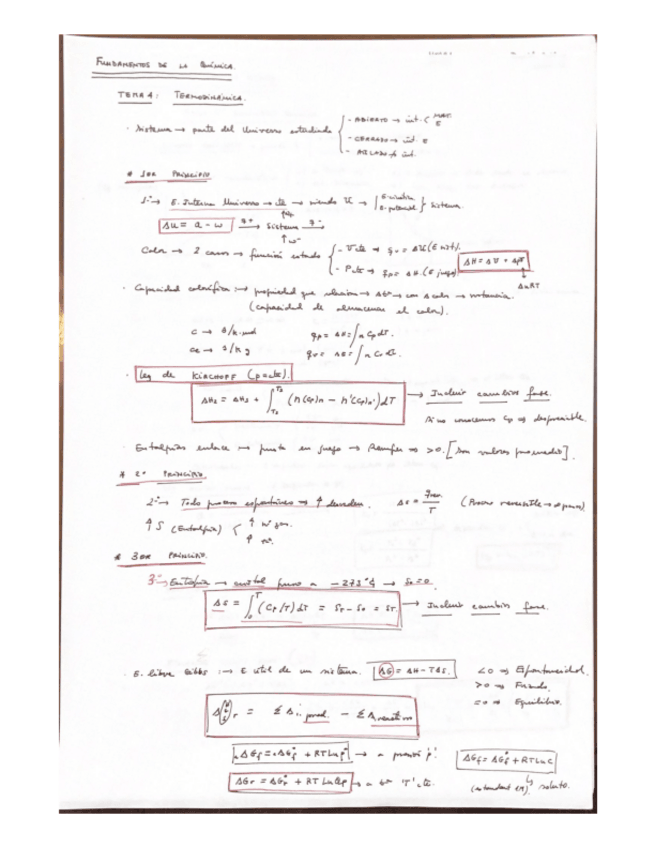 FUNDAMENTOS DE LA QUÍMICA.
TEMA 4: TERMODINÁMICA.
· Sistema → parte del Universo estudiado
- ABIERTO → int. < MAT. E
- CERRADO → int. E
- AISLADO int.
* 1ER PRINCIPIO
1º→ E. Interna Universo → cte → siendo U → E. cinética E. potencial } Sistema.
ΔU = Q - W q+ → Sistema q- →
W-
Calor → 2 casos → función estado
- V cte → qv = ΔU (E int).
- P cte → qp = ΔH. (E juego) ΔH = ΔU + ΔpV
ΔnRT
· Capacidad calorífica: → propiedad que relaciona → Δtº → con Δ calor → sustancia.
(capacidad de almacenar el calor).
c → J/K·mol qp = ΔH = ∫ n Cp dT.
ce → J/K g qv = ΔE = ∫ n Cv dT.
· Ley de KIRCHOFF (p=cte).
ΔH2 = ΔH1 + ∫ T2 T1 (n(Cp)n - n'(Cp)n') dT → Incluir cambios fase.
Si no conocemos Cp → despreciable.
· Entalpías enlace → puesta en juego → Romper → > 0. [Son valores promedio].
* 2º PRINCIPIO.
2º→ Todo proceso espontáneo → ↑ desorden. ΔS = qrev. / T (Proceso reversible →
↑ S (Entalpía) < ↑ nº gas.
↑ nº.
* 3ER PRINCIPIO.
3º→ Entropía → cristal puro a -273ºC → S0 = 0.
ΔS = ∫ T 0 (Cp/T) dT = ST - S0 = ST. → Incluir cambios fase.
· E. libre Gibbs :→ E útil de un sistema. ΔG = ΔH - TΔS. < 0 → Espontaneidad.
> 0 → Forzado.
= 0 → Equilibrio.
Δ( )r = Σ Δ prod. - Σ Δ reactivo
ΔGf = ΔGfº + RT Ln p → a presión 'p'. ΔGf = ΔGfº + RT Ln C
ΔGr = ΔGrº + RT Ln Qp → a tº 'T' cte. (estandart 1M). soluto.